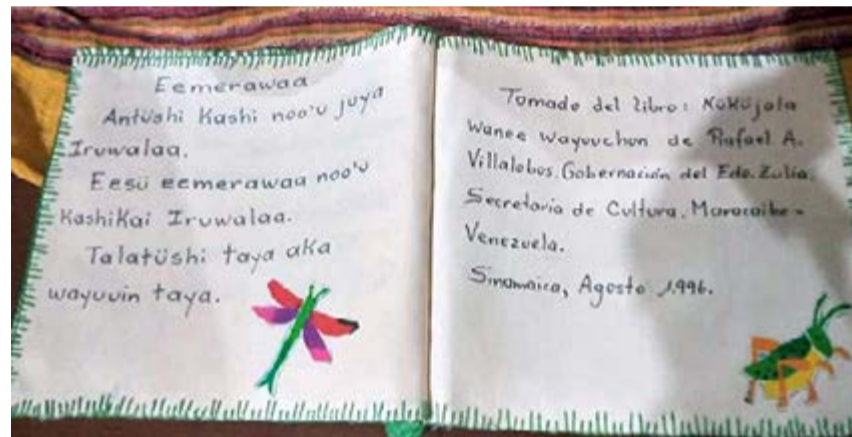 Eemerawaa
Antüshi Kashi noo'u juya
Iruwalaa.
Eesü eemerawaa noo'u
KashiKai Iruwalaa.
Talatüshi taya aKa
wayuuin taya.
Tomado del libro: Nükújala
Wanee wayuuchon de Rafael A.
Villalobos. Gobernación del Edo. Zulia.
Secretaría de Cultura. Maracaibo-
Venezuela.
Sinamaica, Agosto 1.996.